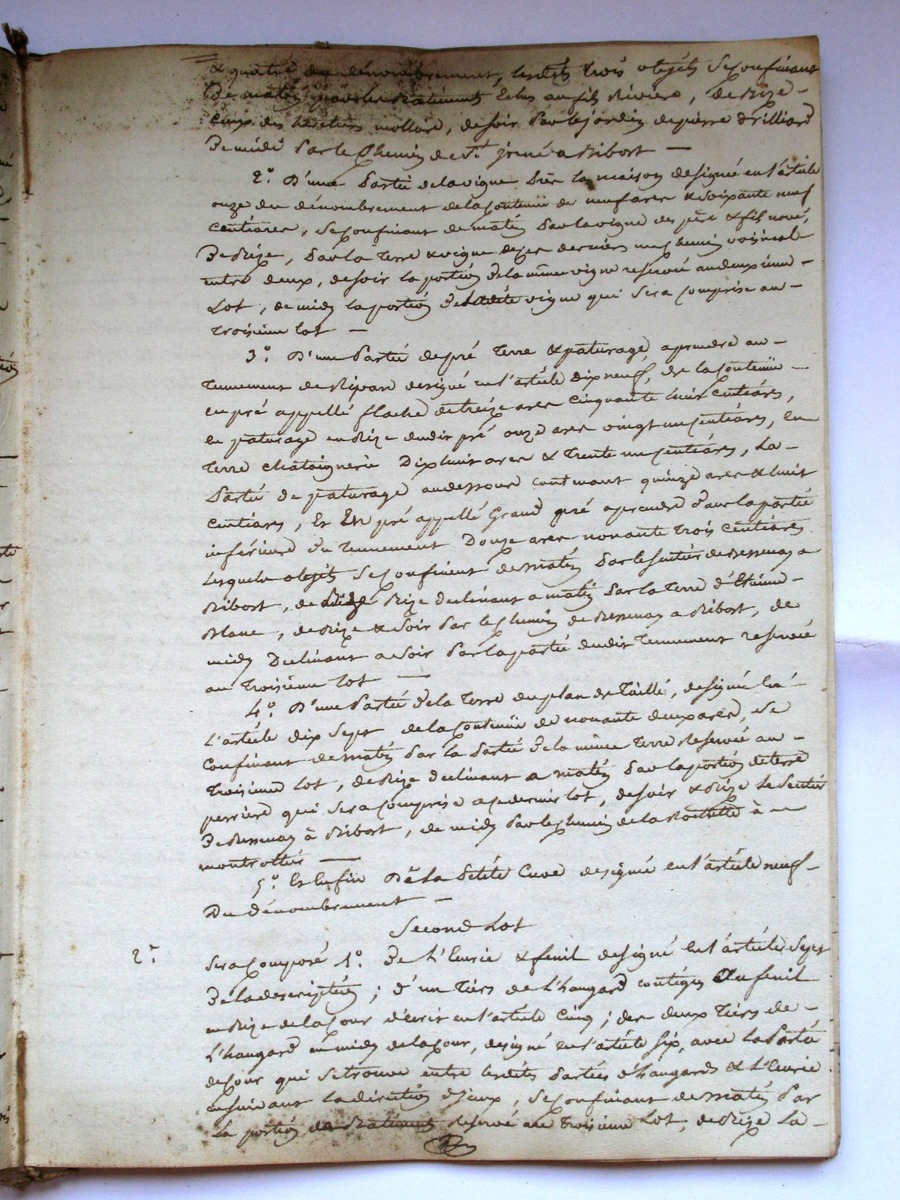 & quatre du dénombrement, lesdits trois objets se confinant
de matin par les Batiments du fils Rivière, de Bize
ceux des héritiers mollard, de soir par le jardin de pierre Drilliard
De midi par le Chemin de St. irené a Ribost —
2°. D'une partie de la vigne Dite la maison designée en l'article
onze du dénombrement de la contenüe de neuf ares & soixante neuf
centiares, se confinant de matin par la vigne des père & fils
De Bize, par la Terre & vigne de ces derniers un chemin voisinal
entre deux, de soir la portion de la même vigne reservée au deuxieme
Lot, de midi la portion de ladite vigne qui sera comprise au
troisieme lot —
3°. D'une partie de pré Terre & paturage a prendre au
Tennement de designé en l'article dix neuf, de la contenüe
en pré appellé flache de treize ares cinquante huit centiares,
en paturage en Bize dudit pré onze ares vingt un centiares, en
Terre chataignerie Dix huit ares & trente un centiares, La
Partie de paturage au dessous contenant quinze ares & huit
centiares, Et En pré appellé Grand pré a prendre dans la partie
inférieure du Tennement Douze ares nonante trois centiares
Lesquels objets se confinent de matin par le sentier de Bessenay a
Ribost, de Bize declinant a matin par la Terre d'Etienne
Blanc, de Bize & soir par le chemin de Bessenay a Ribost, de
midi Declinant a soir par la partie dudit Tennement reservée
au troisieme lot —
4°. D'une Partie de la Terre du plan de Taillé, designé en
L'article dix sept de la contenüe de nonante deux ares, se
confinant de matin par la Partie de la même Terre Reservée au
Troisieme lot, de Bize declinant a matin par la portion de terre
perriere qui sera comprise au dernier lot, de soir & Bize le Sentier
De Bessenay à Ribost, de midi par le chemin de la Rochette à
montrottier —
5°. Et Enfin De La Petite Cuve designée en l'article neuf
Du dénombrement —
Second Lot
2°.
Sera composé 1°. De l'Ecurie & fenil designé en l'article Sept
De la description; d'un Tiers de l'hangard contigu Au fenil
en Bize de la cour décrit en l'article Cinq; des deux Tiers de
L'hangard en midi de la cour, designé en l'article six, avec la partie
de cour qui se trouve entre lesdites parties d'hangards & l'Ecurie
en suivant la direction d'iceux, se confinant de matin par
La portion de Batiment Reservé au Troisieme Lot, de Bize La